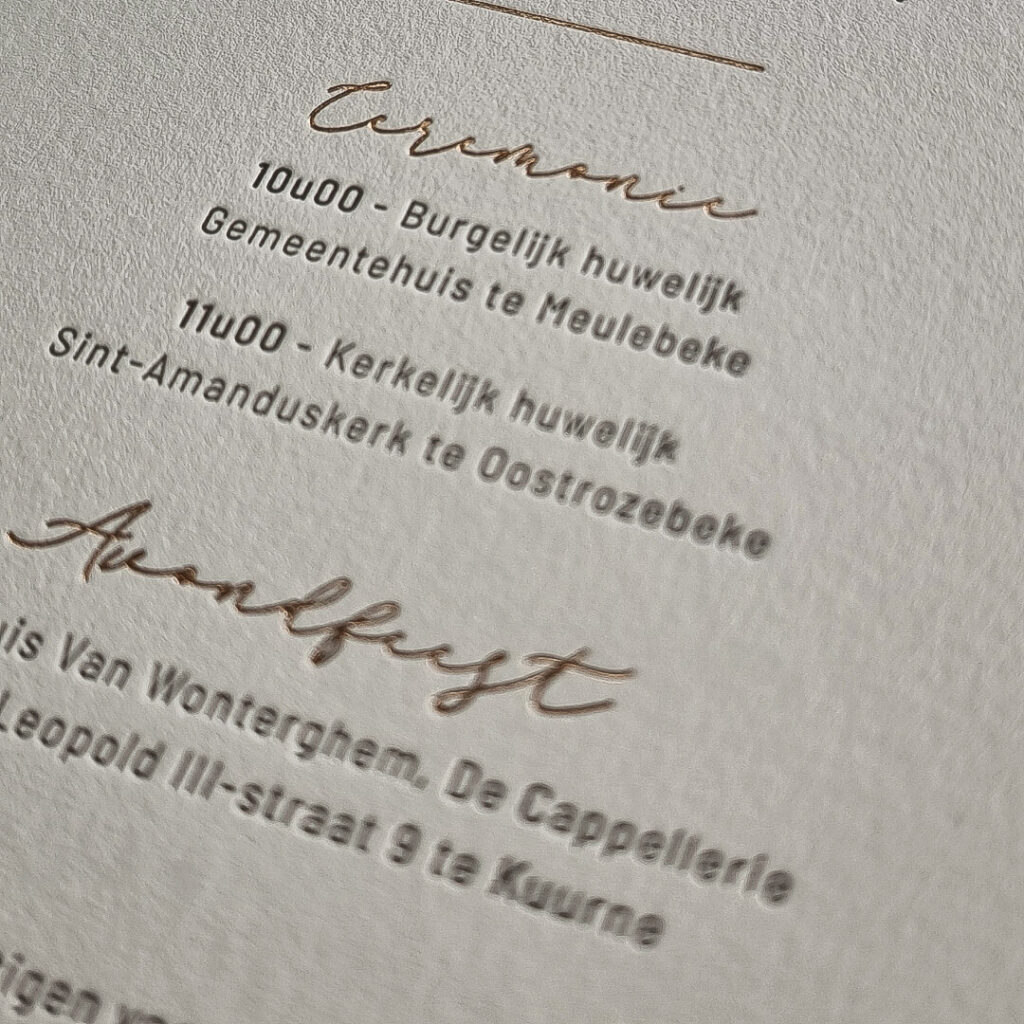 Ceremonie
10u00 - Burgelijk huwelijk
Gemeentehuis te Meulebeke
11u00 - Kerkelijk huwelijk
Sint-Amanduskerk te Oostrozebeke
Avondfeest
Van Wonterghem, De Cappellerie
Leopold III-straat 9 te Kuurne